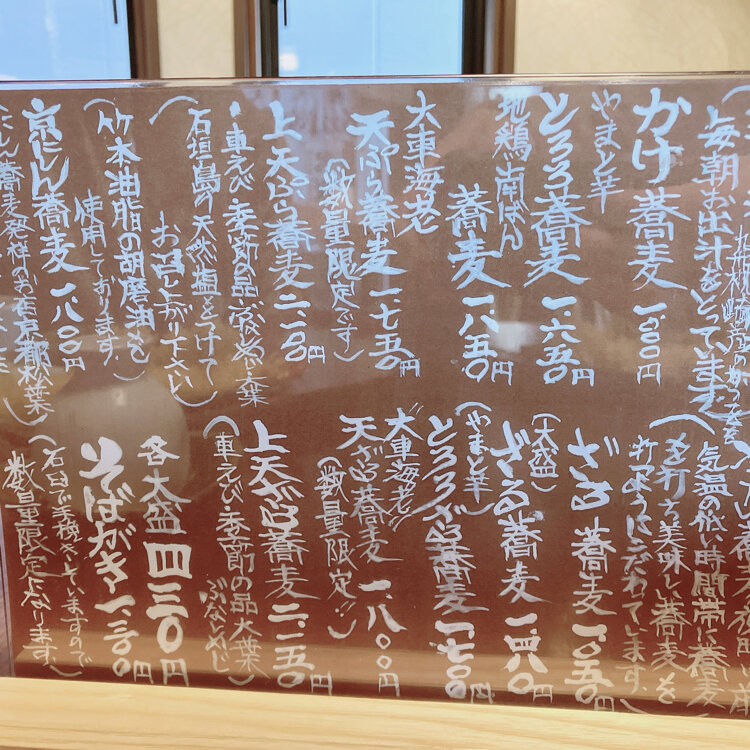 毎朝お出汁をとっています。
かけ蕎麦 一、〇〇〇円
やまと芋
とろろ蕎麦 一、六五〇円
地鶏南ばん
蕎麦 一、八五〇円
大車海老
天ぷら蕎麦 一、七五〇円
(数量限定です)
上天ぷら蕎麦 二、二〇〇円
・車えび・季節の品
石垣島の天然塩をつけて
お召し上がり下さい)
(竹本油脂の胡麻油を
使用しております。
京にしん蕎麦 一、八〇〇円
(にしん蕎麦発祥のお店京都松葉
気温の低い時間帯に蕎麦
を打ち美味しい蕎麦を
打つようにこだわっています。)
ざる蕎麦 一、〇五〇円
(大盛)
ざる蕎麦 一、四八〇円
(やまと芋)
とろろざる蕎麦 一、七〇〇円
大車海老!!
天ざる蕎麦 一、八〇〇円
(数量限定!!)
上天ざる蕎麦 二、二五〇円
(車えび・季節の品 大葉
ぶなしめじ)
各大盛 四三〇円
そばがき 一、三〇〇円
(石臼で手挽きしていますので
数量限定になります。)